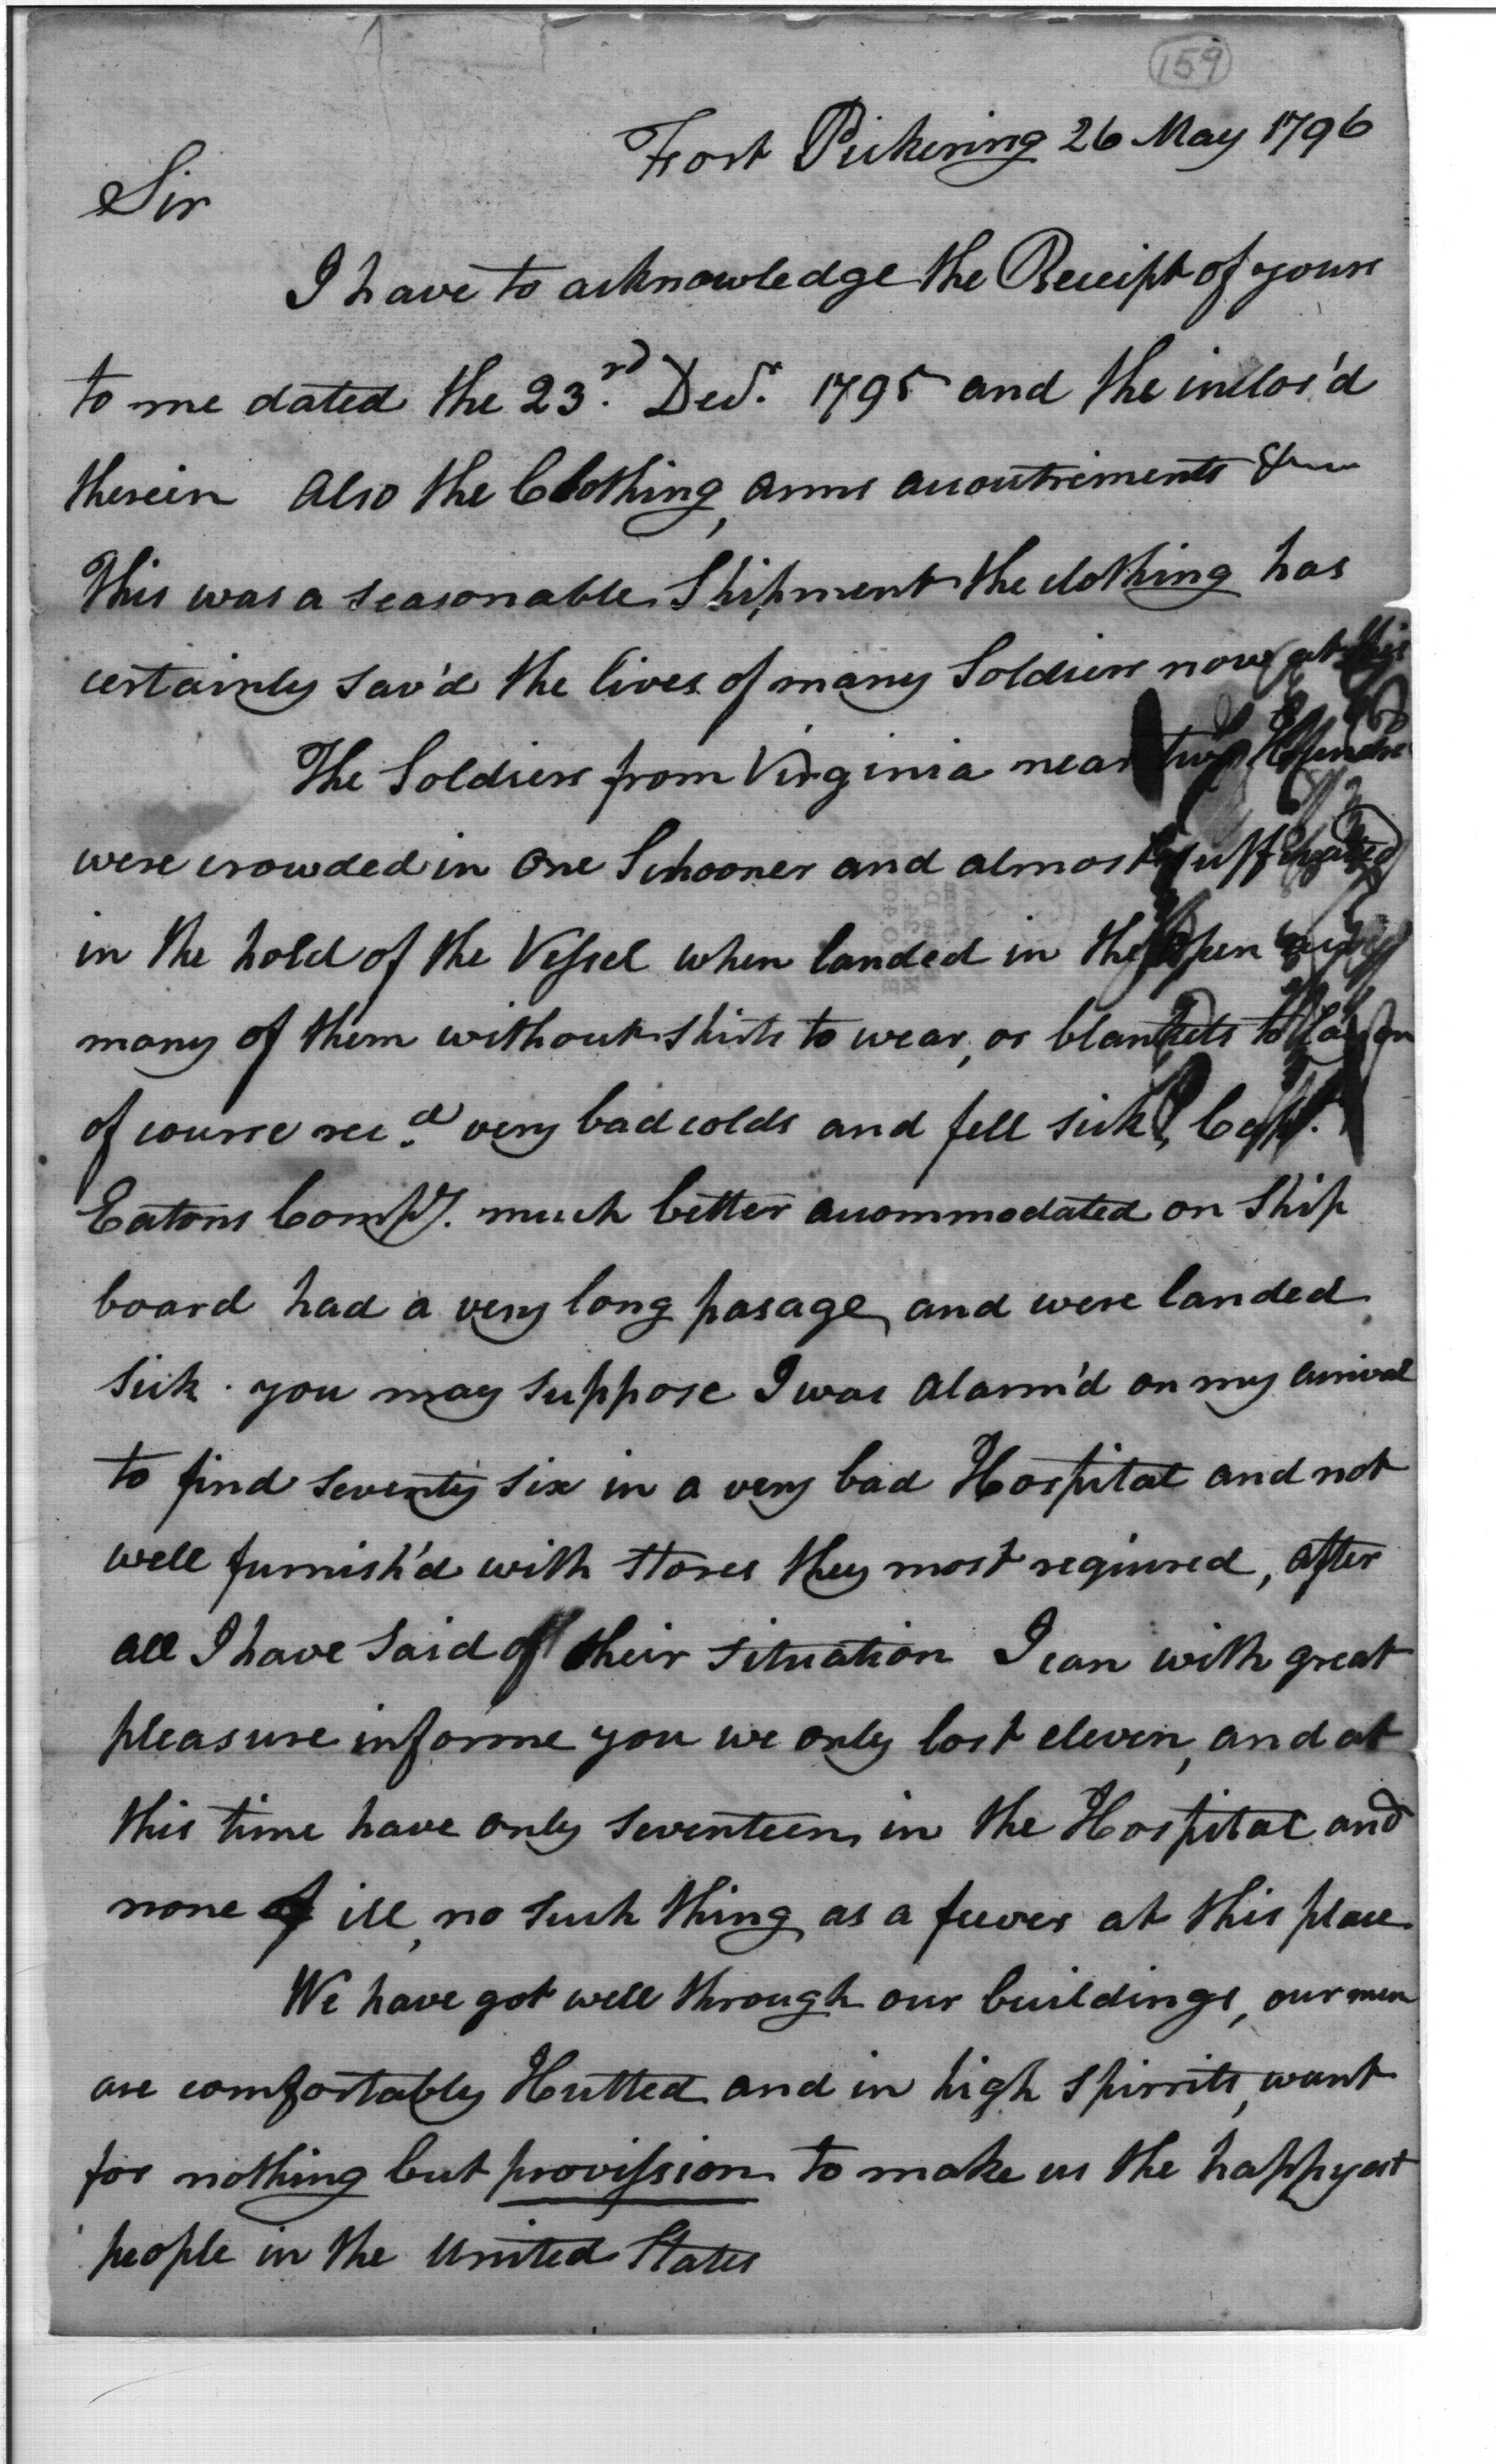 159
Fort Pickering 26 May 1796
Sir
I have to acknowledge the Receipt of yours
to me dated the 23.rd Decr. 1795 and the inclos'd
therein Also the Clothing, arms accoutriments &
This was a seasonable Shipment the clothing has
certainly sav'd the lives of many Soldiers now at this
The Soldiers from Virginia near two Hundred
were crowded in One Schooner and almost suffocated
in the hold of the Vessel when landed in the open
many of them without shirts to wear, or blankets to lay on
of course rec.d very bad colds and fell sick, Capt.
Eatons Compy. much better accommodated on Ship
board had a very long pasage, and were landed
sick. you may suppose I was alarm'd on my arrival
to find seventy six in a very bad Hospital and not
well furnish'd with stores they most required, after
all I have said of their situation I can with great
pleasure informe you we only lost eleven, and at
this time have only seventeen in the Hospital and
none ill, no such thing as a feever at this place
We have got well through our buildings, our men
are comfortably Hutted and in high spirrits, want
for nothing but provission to make us the happyest
people in the United States